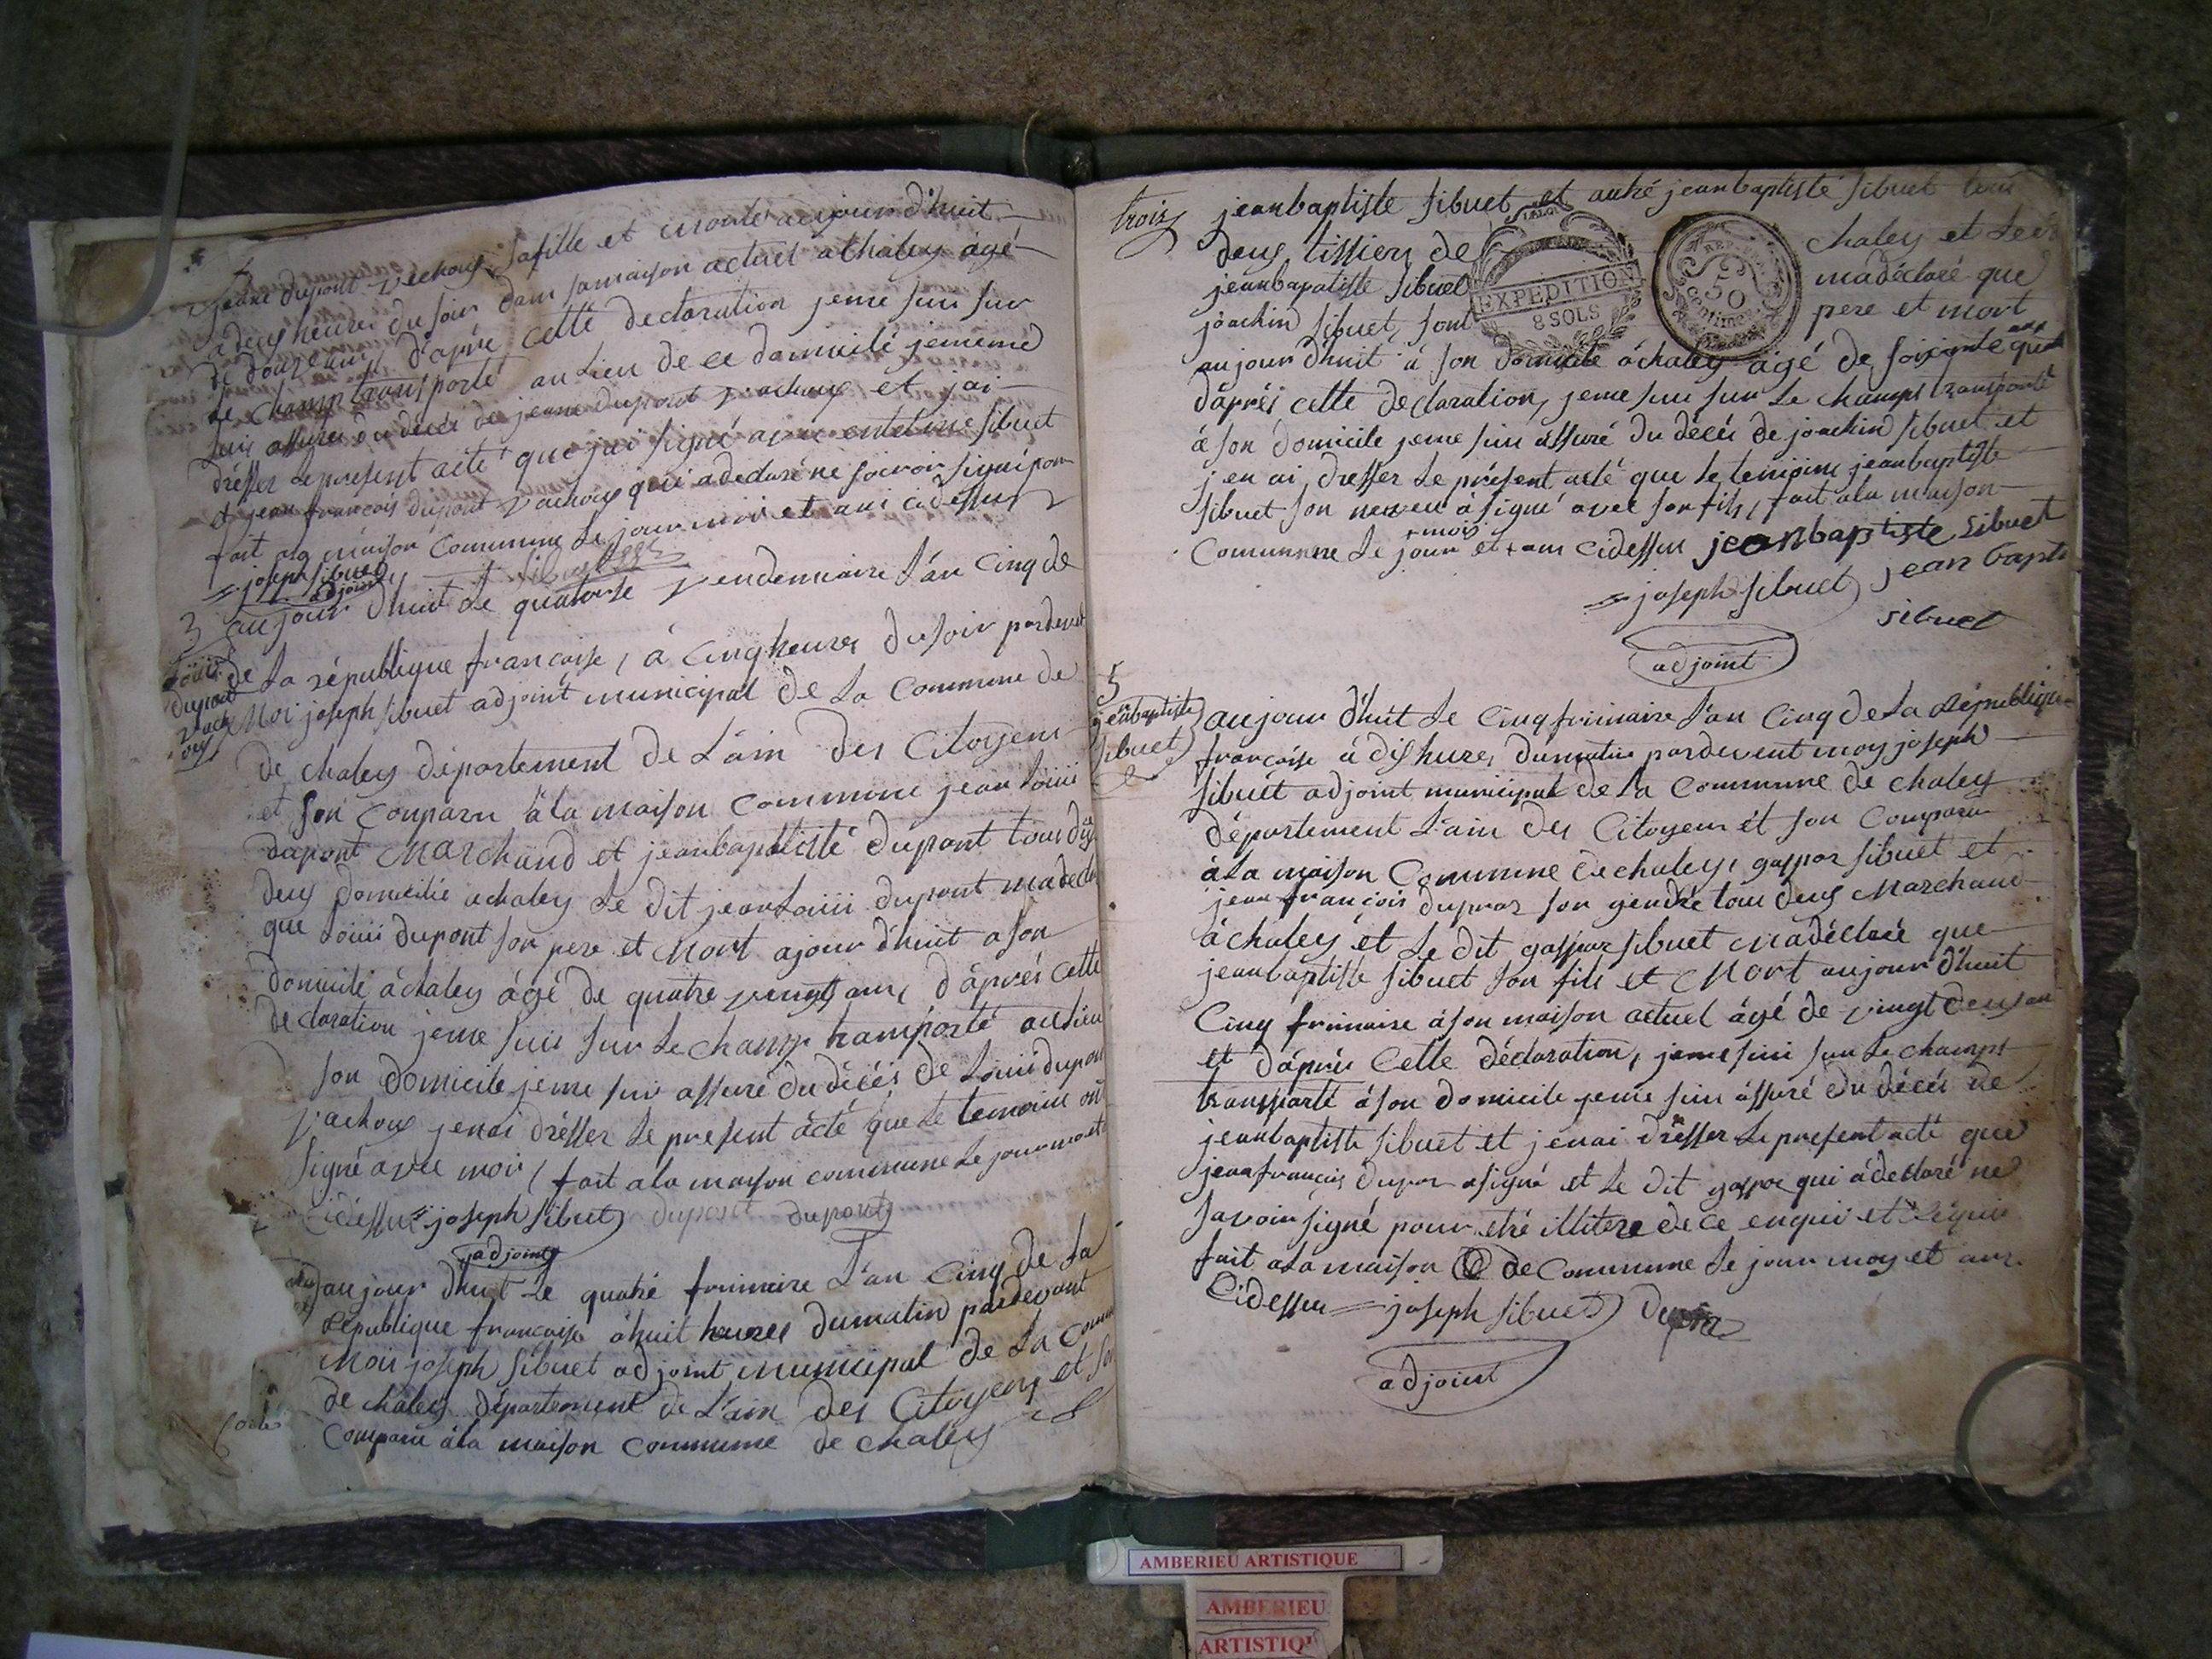 jeane dupont vachoux safille et morte aujourd'huit
a deux heures du soir dans sa maison actuel a Chaley âgé
de douze ans, d'aprè cette declaration jeme suis sur
le champ transporté au lieu de ce domicile jememe
suis assurer du décée de jeane dupont vachoux et jai
drésser le present acte que jai signé avec sibuet
et jean françois dupont vachoux qui a declaré ne savoir signé pour
fait a la maison Commune le jour moi et ans cidessus
joseph sibuet
adjoint
3
aujour d'huit le quatorse vendemiaire l'an cinq de
Louis
dupont
vach
oux
de la république françaisse, à cinq heures du soir pardevent
Moi joseph sibuet adjoint municipal de la Commune de
de chaley département de L'ain des Citoyens
et son conparu à la maison Commune jean Louis
dupont Marchand et jeanbaptisté dupont tous
deux domicilie achaley le dit jean Louis dupont madecla
que Louis dupont son pere et Mort ajour d'huit a son
domicile àchaley âgé de quatre vingts ans, d'âprés cette
declaration jeme suis sur le champ transporté aulieu
son domicile jeme suis assuré dudécés de Louis dupont
vachoux jenai drésser le present âcté que le temoins ont
signé avec moi, fait ala maison commune le jour mois et
cidessus joseph sibuet dupont dupont
adjoint
aujour dhuit le quatré frimaire L'an Cinq de La
République françaisse àhuit heures dumatin pardevant
Moi joseph sibuet adjoint municipal de La Comm
de chaley département de L'ain des Citoyens et so
Comparu àla maison commune de chaley
trois
jeanbaptiste sibuet et autré jeanbaptisté sibuet tous
deux tissiers de chaley et le
jeanbapatiste sibuet madéclaré que
joachin sibuet, sont pere et mort
EXPEDITION
8 SOLS
REP.
50
Centimes
aujour d'huit à son domicile àchaley âgé de soixante quat ans
d'âprés cette declaration, jeme suis sur le champs transporté
à son domicile jeme suis assuré du décés de joachin sibuet et
jen ai dresser le présent acté que le temoins jeanbaptiste
sibuet son neveu à signé avec son fils, fait ala maison
Comunne le jour + mois et + ans cidessus jeanbaptiste sibuet
joseph sibuet jean bapti
sibuet
adjoint
5
jeanbaptiste
sibuet
aujour d'huit le cinq frimaire l'an Cinq de La République
françaisse à dix hures dumatin pardevent moy joseph
sibuet adjoint municipal de la Commune de chaley
département L'ain des Citoyens ét son Comparu
à La maison Commune de chaley, gaspar sibuet et
jean françois dupraz son gendre tous deux Marchand
à chaley et le dit gaspar sibuet madéclaré que
jeanbaptiste sibuet son fils et Mort aujour d'huit
Cinq frimaire àson maison actuel âgé de vingt deux ans
et d'âprés Cette déclaration, jeme suis sur le champs
transporté àson domicile jeme suis assuré du décés de
jeanbaptiste sibuet et jenai drésser le present acté que
jeanfrançois dupraz asigné et le dit gaspar qui àdeclaré ne
savoir signé pour etré illitere de ce enquis et réquis
fait ala maison de Commune le jour moy et ans.
Cidessus joseph sibuet
adjoint
AMBERIEU ARTISTIQUE
AMBERIEU
ARTISTIQU